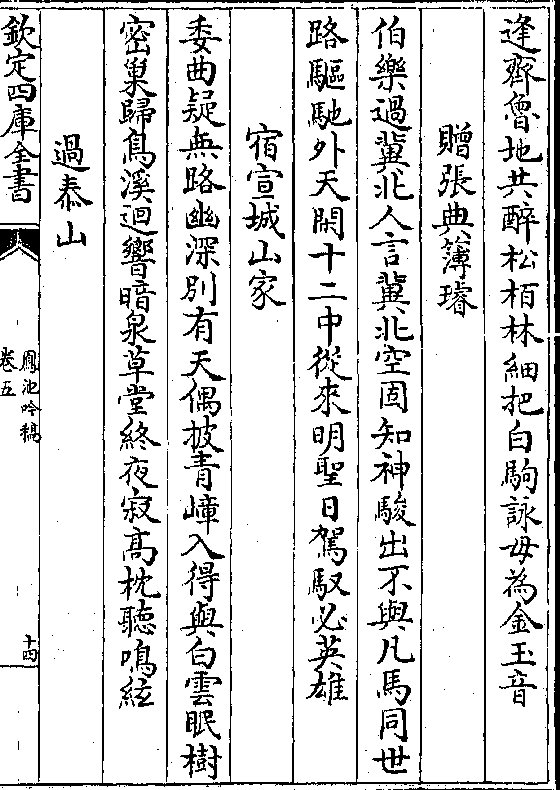 逢齊魯地共醉松栢林細把白駒詠毋為金玉音
贈張典簿璿
伯樂過冀北人言冀北空固知神駿出不與凡馬同世
路驅馳外天閑十二中從來明聖日駕馭必英雄
宿宣城山家
委曲疑無路幽深別有天偶披青嶂入得與白雲眠樹
密巢歸鳥溪迴響暗泉草堂終夜寂髙枕聽鳴絃
過泰山
欽定四庫全書
鳳池吟稿
卷五
十四